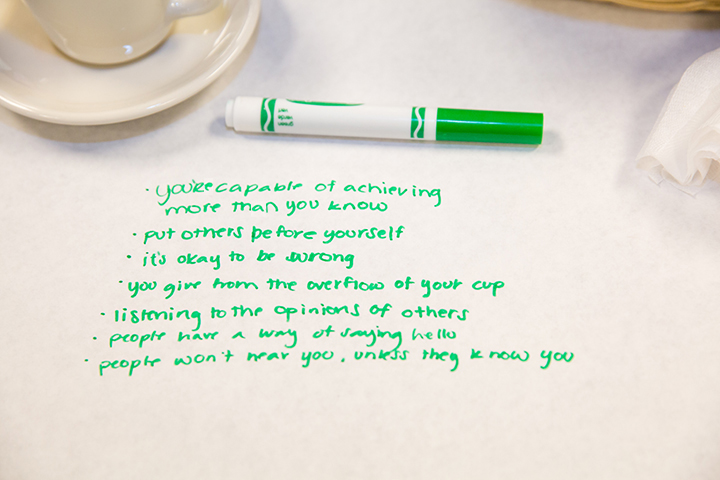 · you're capable of achieving
more than you know
· put others before yourself
· it's okay to be wrong
· you give from the overflow of your cup
· listening to the opinions of others
· people have a way of saying hello
· people won't hear you, unless they know you